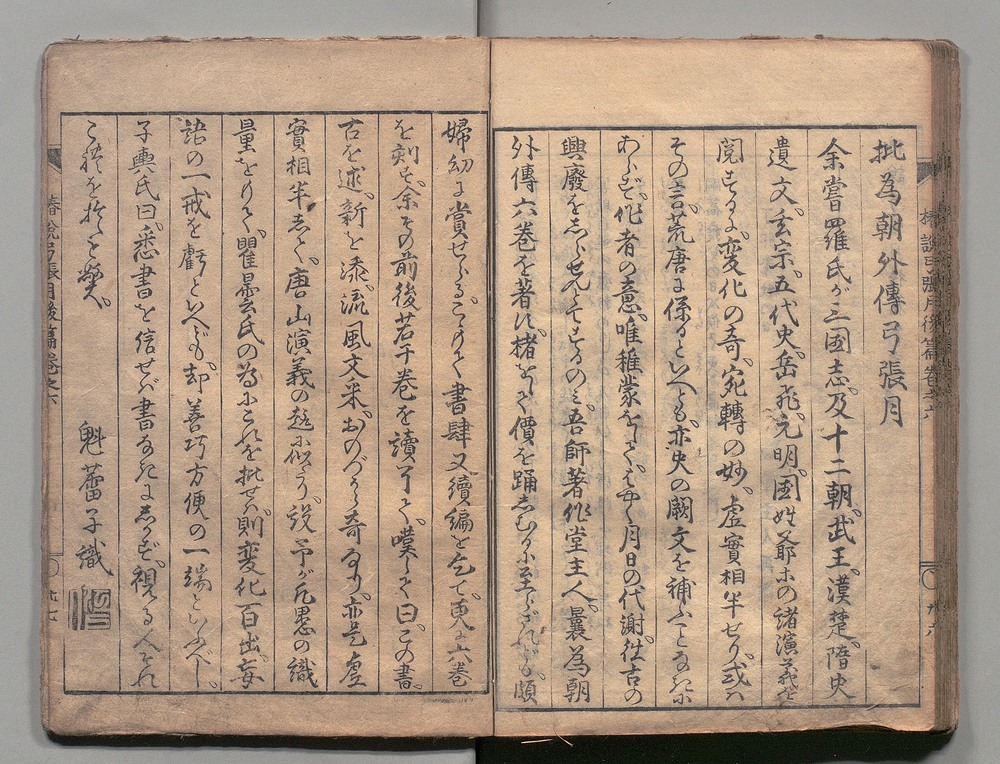 批為朝外傳弓張月
余嘗四羅氏が三国志。及十二朝。武王。漢楚。隋史
遺文。玄宗。五代史。岳飛。元明。国姓爺ホの諸演義を
閲するに。変化の奇。宛轉の妙。虚實相半せり。或は
その言。荒唐に係るといへども。亦史の闕文を補ふことなきに
あらず。作者の意。唯稚蒙をして。はやく月日の代謝。往古の
興廢をしらせんとてするのミ。吾師著作堂主人。曩為朝
外傳六巻を著に。楮をして價を踊しむるに至らざれども。頗
婦幼に賞せらる。こゝをもて書肆又續編を乞て。更に六巻
を刻す。余その前後若干巻を讀了て。嘆して曰。この書。
古を述。新を添。流風文采。おのづから奇なり。亦是虚
實相半して。唐山演義の趣に似たり。説予が凡愚の識
量をもて。瞿曇氏の為にこれを批せば。則変化百出。妄
語の一戒を虧といへども。却善巧方便の一端といふべし。
子輿氏曰。悉書を信せば書なきにしかず。視る人それ
これを於とを
魁蕾子識
椿說弓張月後篇卷之六
椿說弓張月後篇卷之六
廿六
廿七